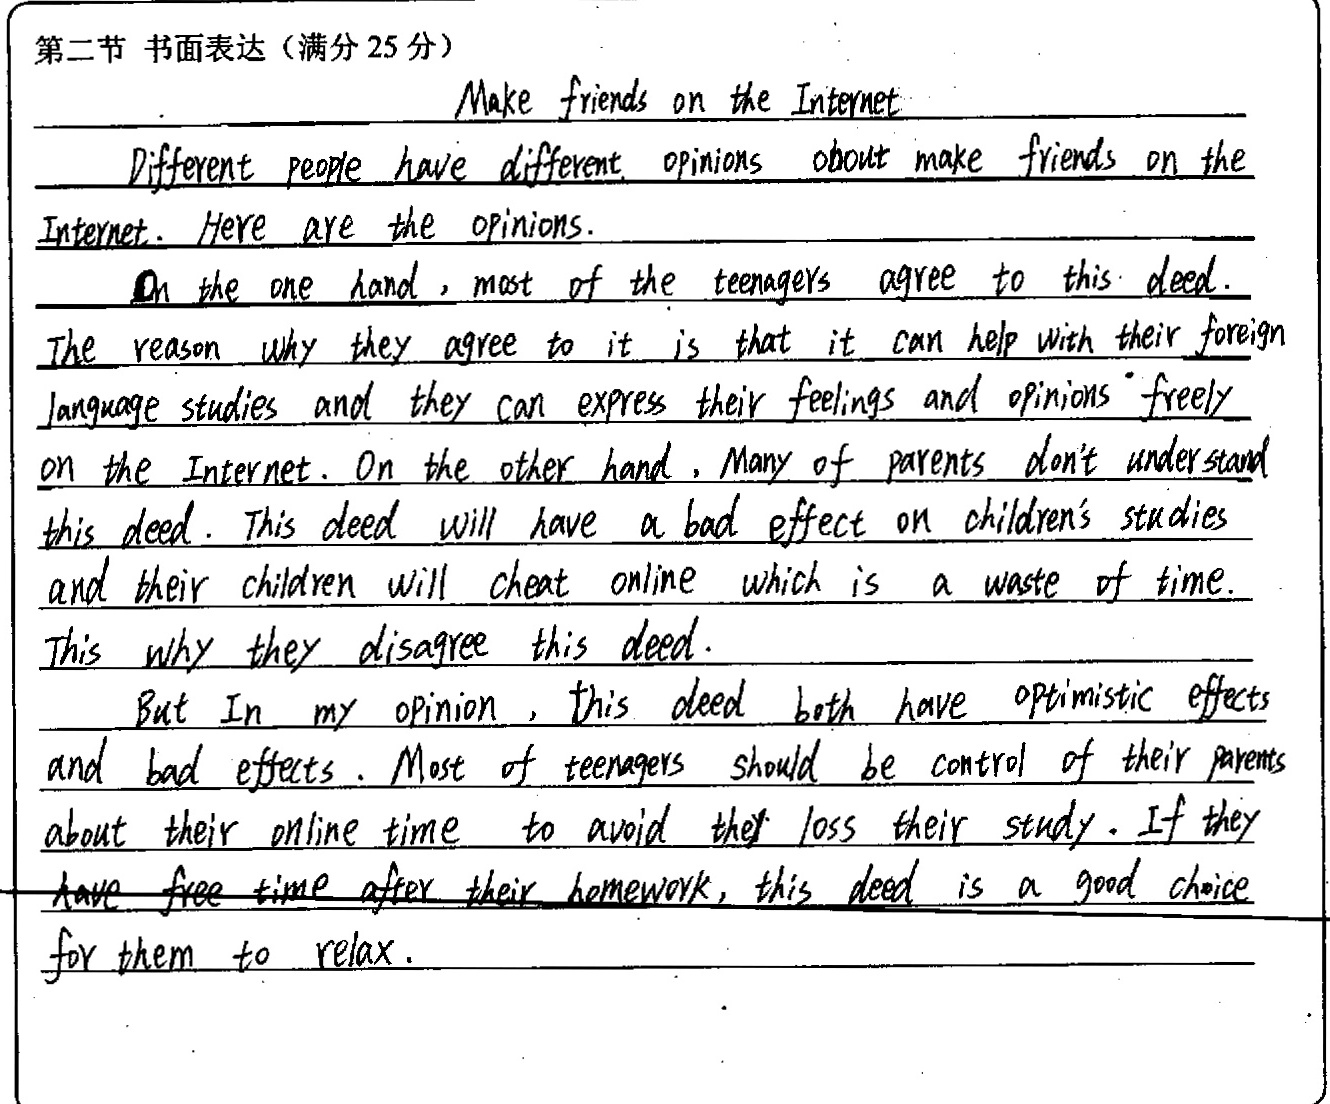 第二节 书面表达（满分 25 分）
Make friends on the Internet
Different people have different opinions obout make friends on the
Internet. Here are the opinions.
On the one hand, most of the teenagers agree to this deed.
The reason why they agree to it is that it can help with their foreign
language studies and they can express their feelings and opinions freely
on the Internet. On the other hand, Many of parents don't understand
this deed. This deed will have a bad effect on children's studies
and their children will cheat online which is a waste of time.
This why they disagree this deed.
But In my opinion, this deed both have optimistic effects
and bad effects. Most of teenagers should be control of their parents
about their online time to avoid they loss their study. If they
have free time after their homework, this deed is a good choice
for them to relax.